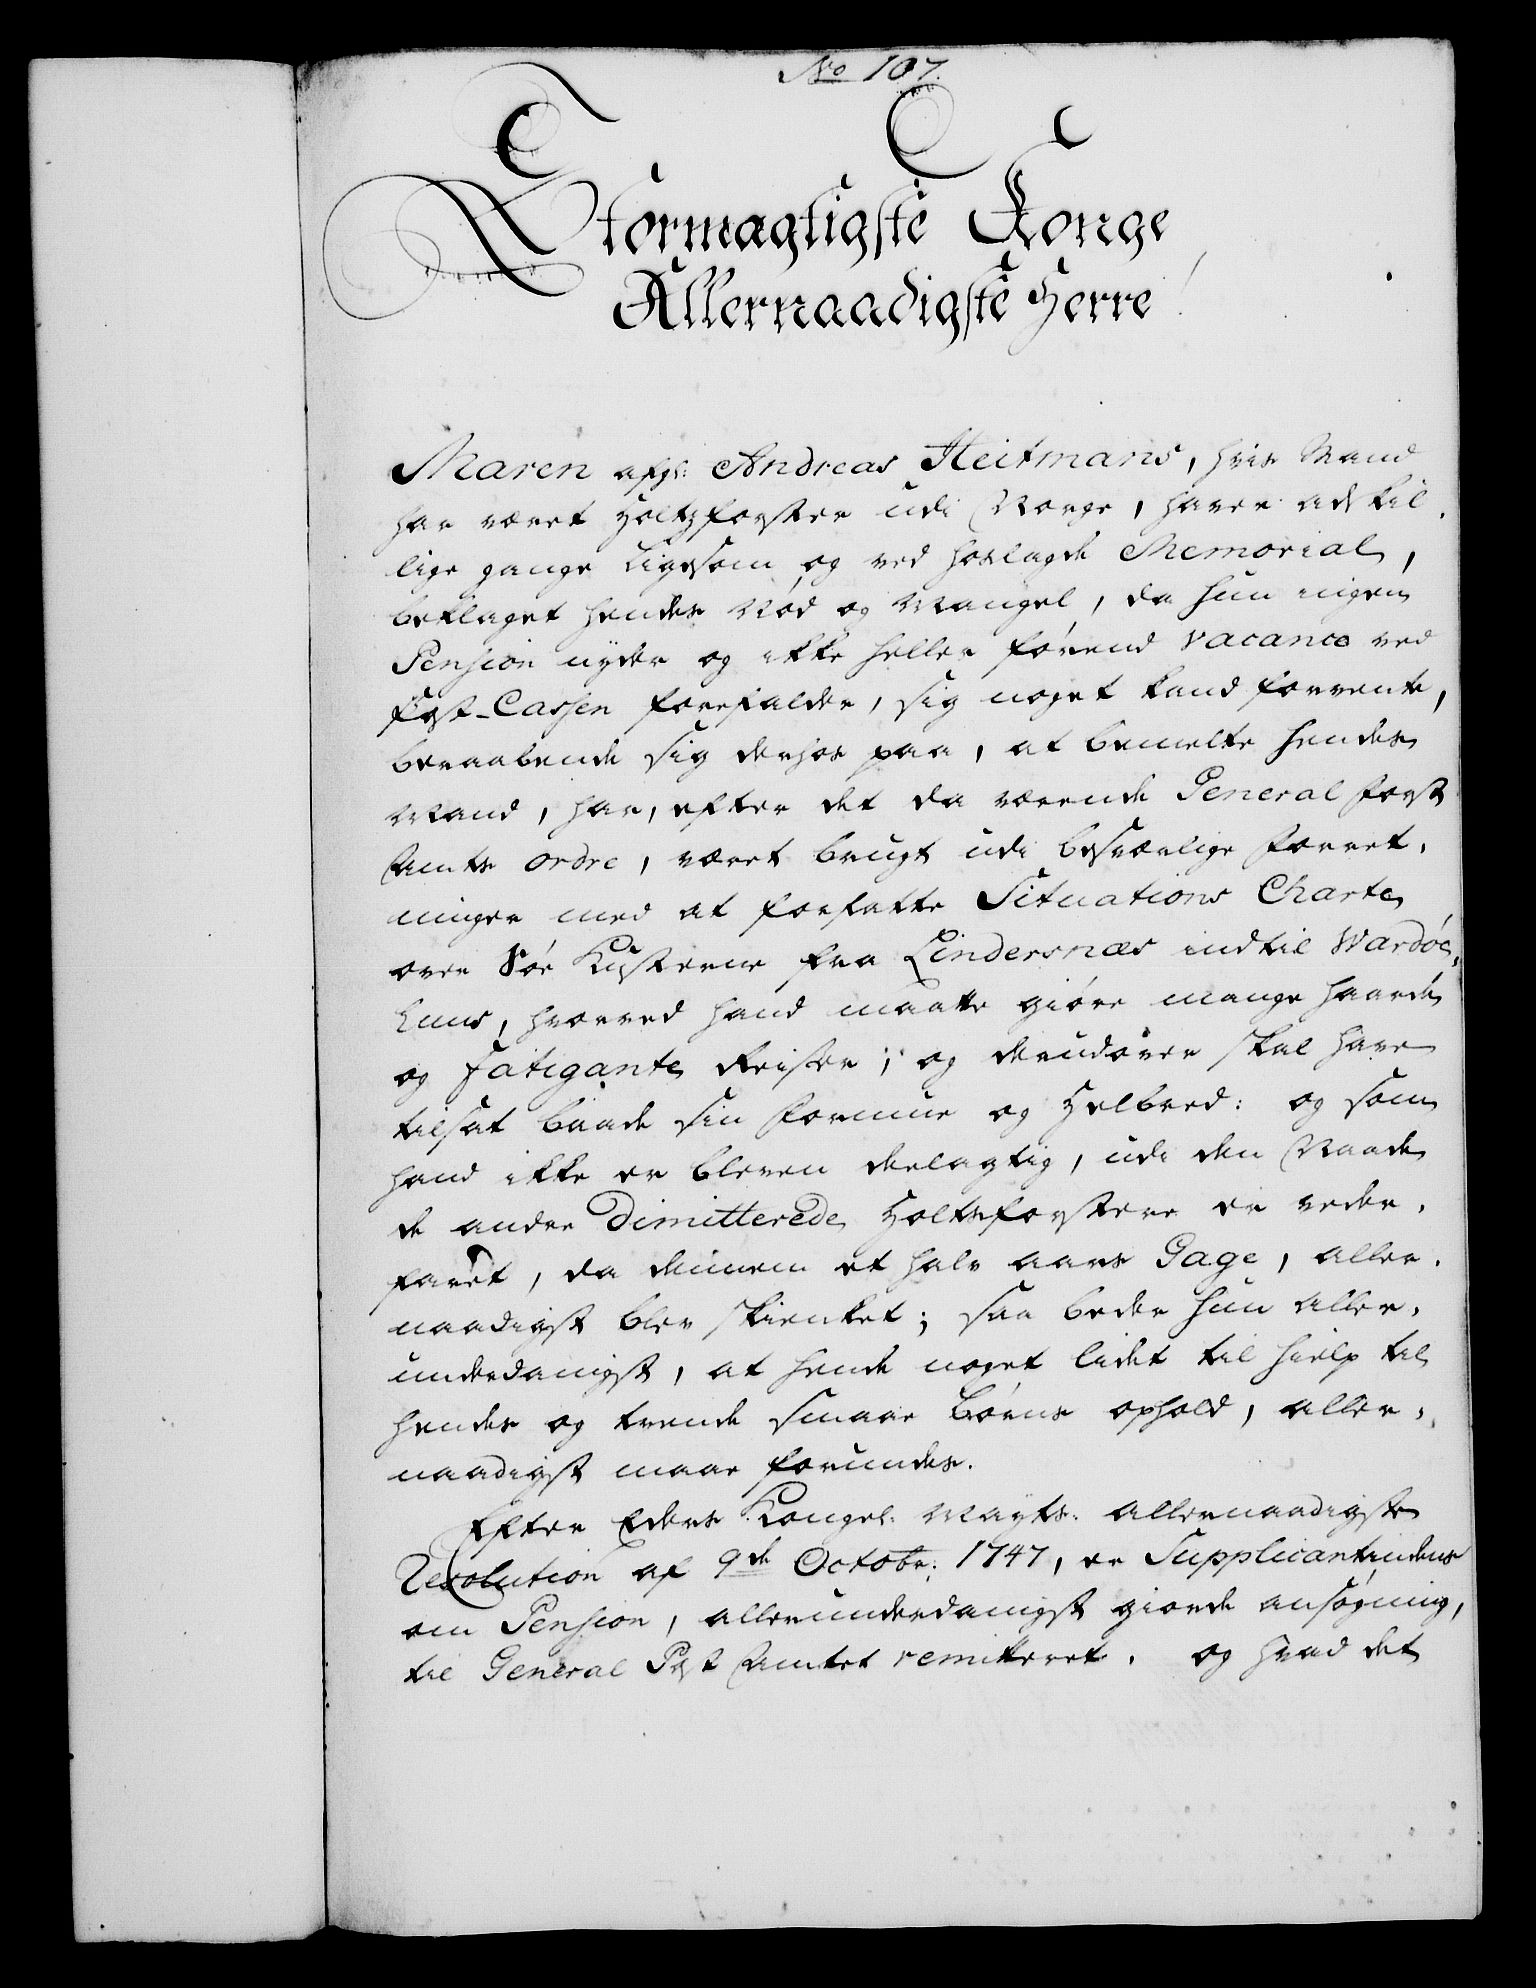 No 107.
Stormægtigste Konge
Allernaadigste Herre!
Maren afg: Andreas Heitmans, hvis Mand
har været Holtzforster udi Norge, haver adskil-
lige gange ligesom og ved hoslagde Memorial,
beklaget hendes Nød og Mangel, da hun ingen
Pension nyder og ikke heller førend Vacance ved
Post-Cassen forefalder, sig noget kand forvente,
beraabende sig derhos paa, at bemelte hendes
Mand, har, efter det da værende General Forst
Amts ordre, været brugt udi besværlige Forret-
ninger med at forfatte Situations Charte
over Søe Kusterne fra Lindersnæs indtil Wardøe-
huus, hvorved hand maatte giøre mange haarde
og fatigante Reiser; og derudover skal have
tilsat baade sin Formue og Helbred: og som
hand ikke er bleven deelagtig, udi den Naade
de andre Dimitterede Holtzforstere er veder-
faret, da dennem et halv aars Gage, aller-
naadigst blev skienket; saa beder hun aller-
underdanigst, at hende noget lidet til hielp til
hendes og trende smaae Børns ophold, aller-
naadigst maae forundes.
Efter Eders Kongel: Mayts: allernaadigste
Resolution af 9de Octobr: 1747, er Supplicantindens
om Pension, allerunderdanigst giorde ansøgning,
til General Post Amtet remitteret. og hvad det